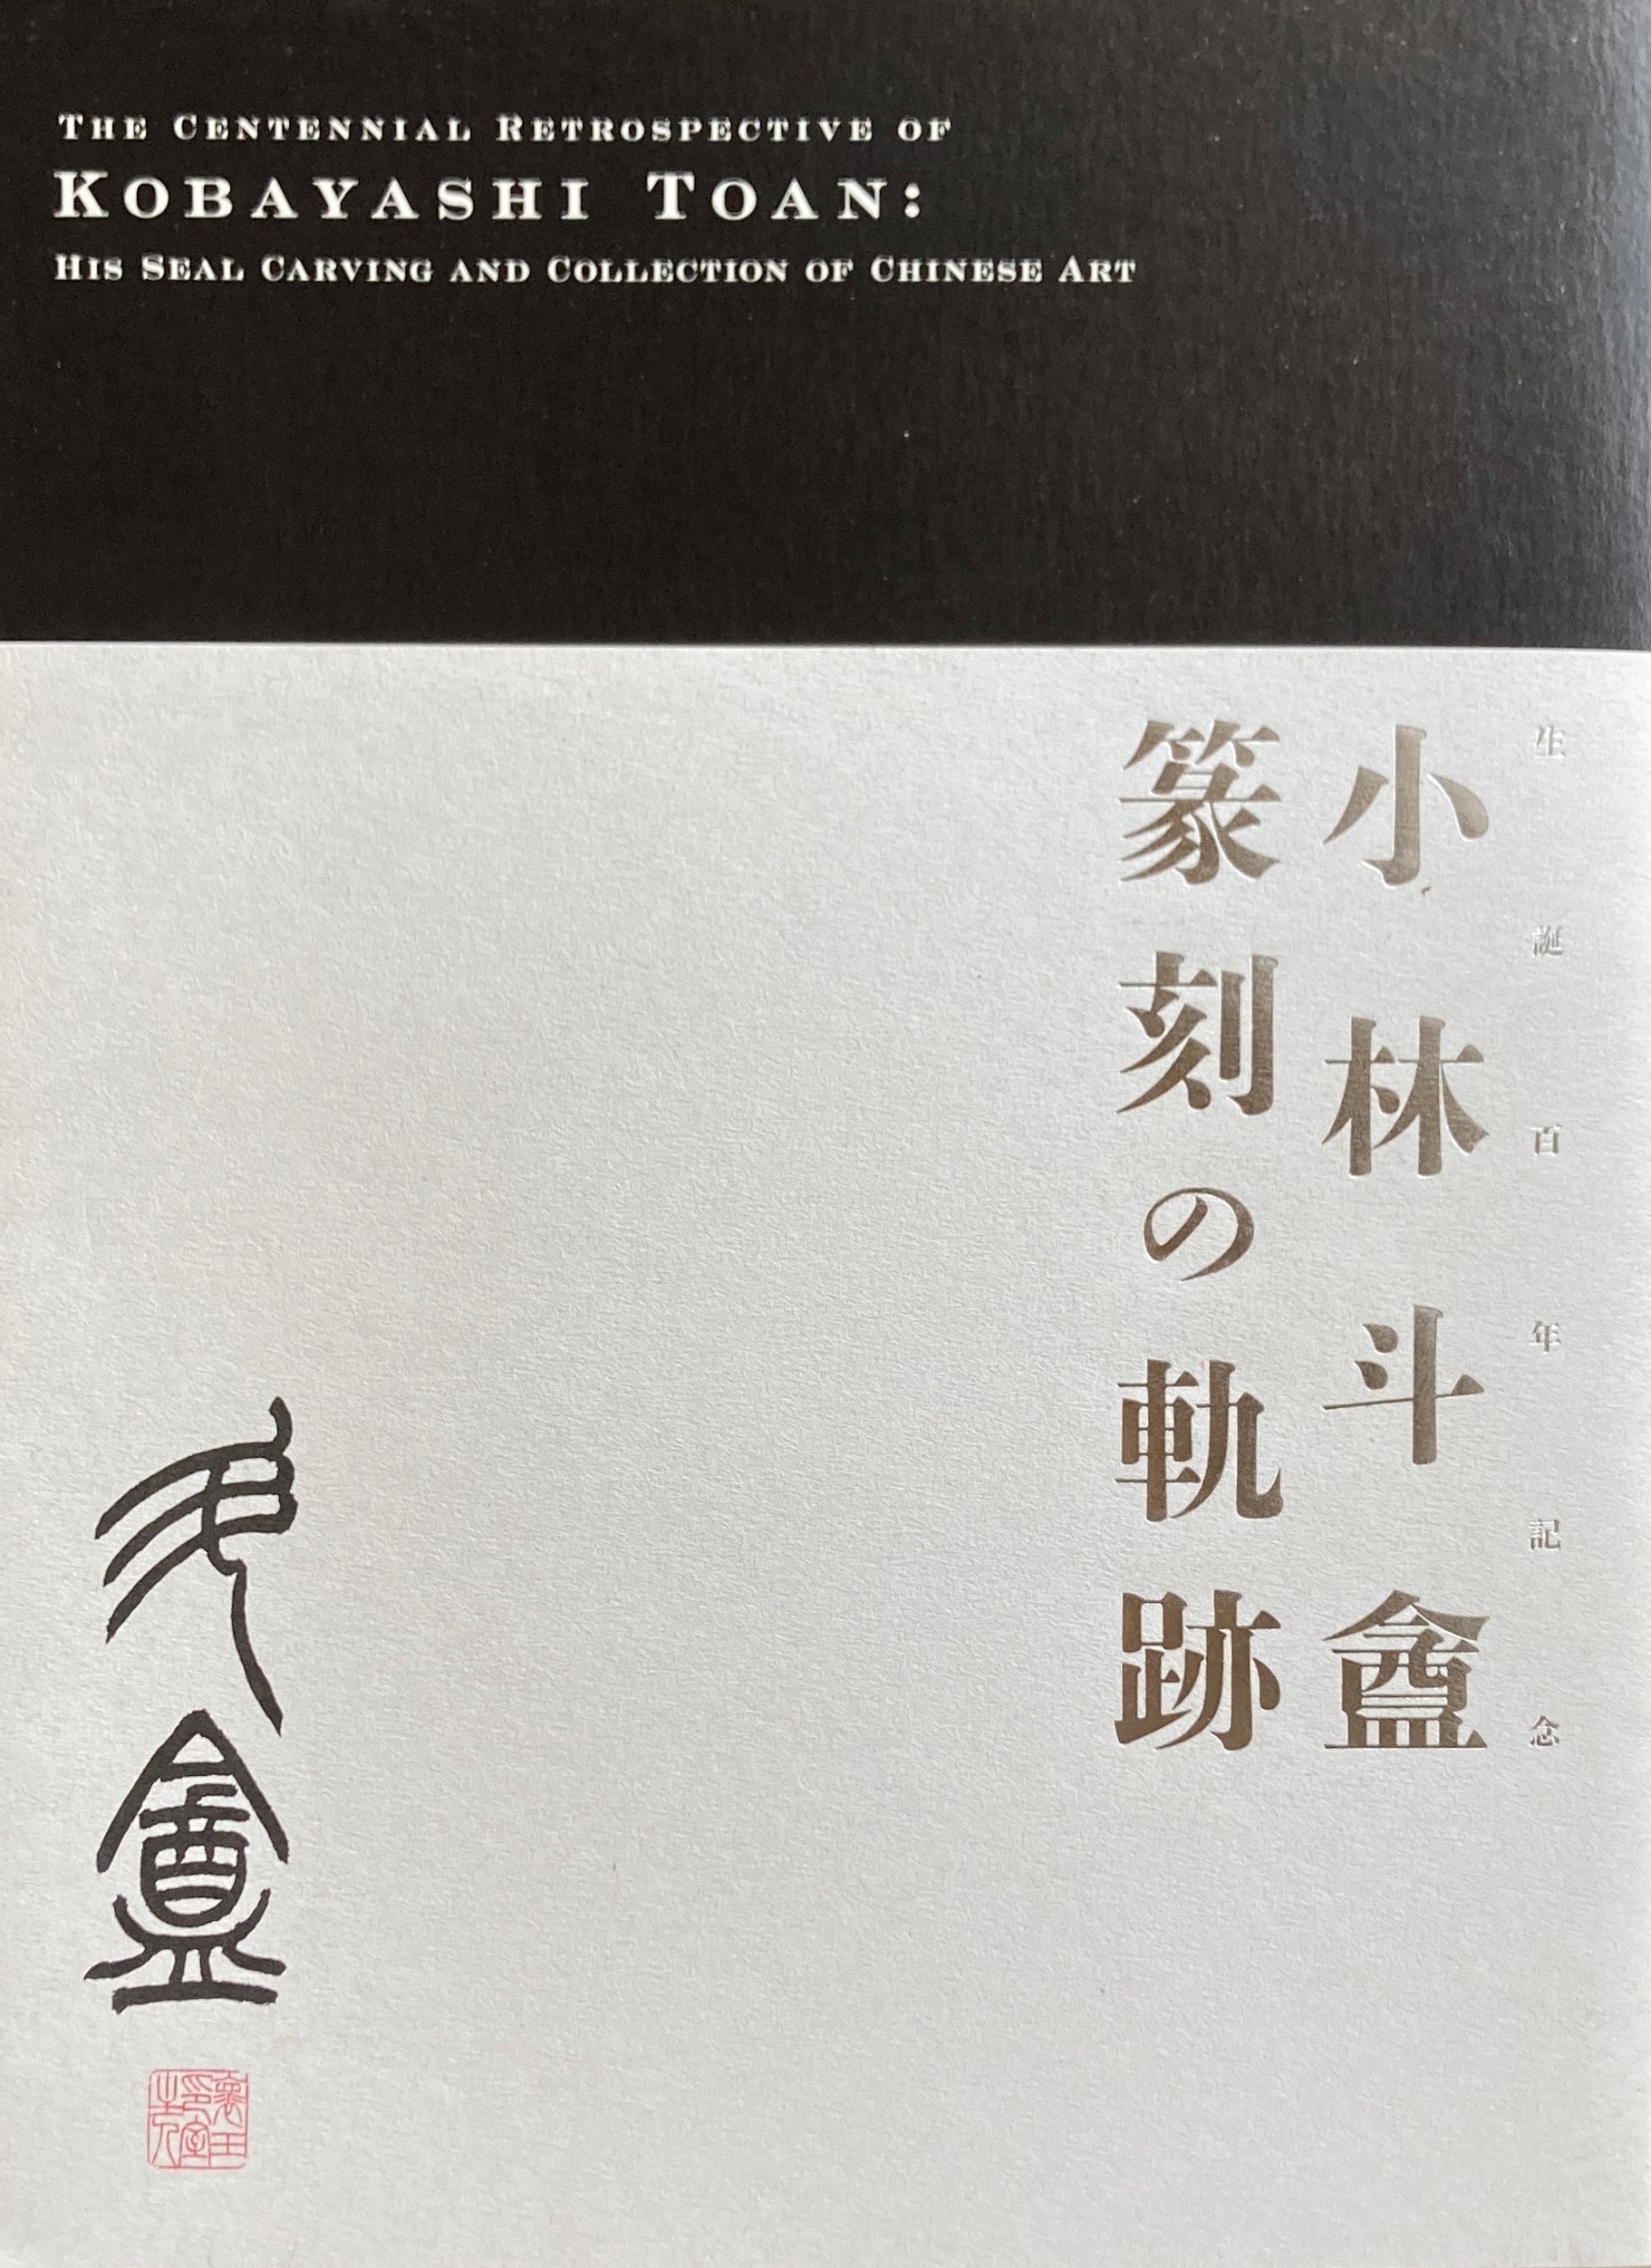 THE CENTENNIAL RETROSPECTIVE OF
KOBAYASHI TOAN:
HIS SEAL CARVING AND COLLECTION OF CHINESE ART
生誕百年記念
小林斗盦
篆刻の軌跡
斗盦